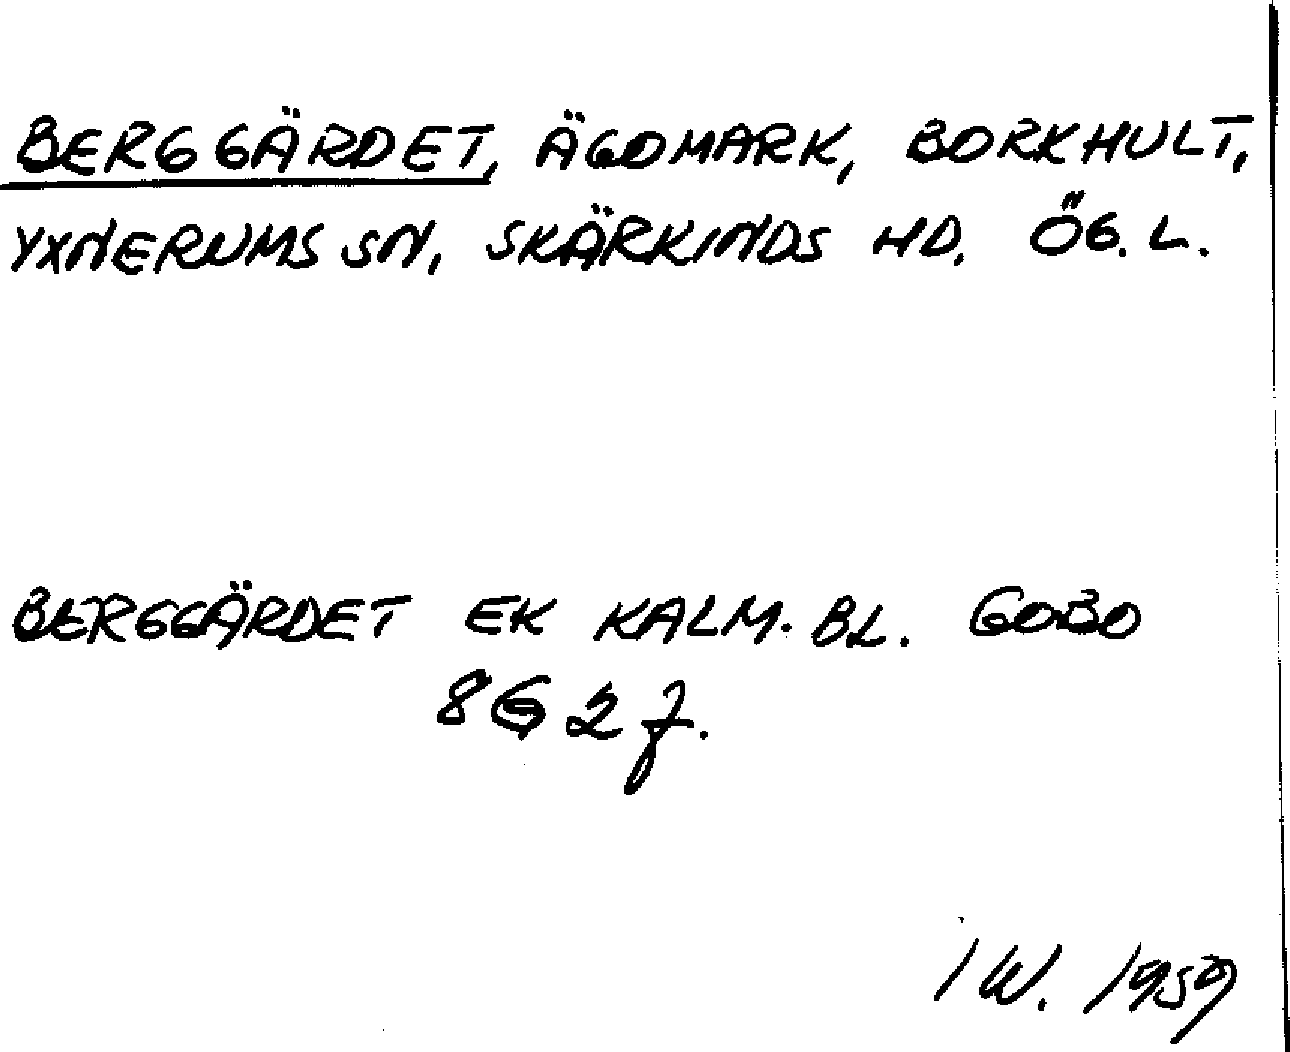 BERGGÄRDET, ÄGOMARK, BORKHULT,
YXNERUMS SN, SKÄRKINDS HD. ÖG. L.
BERGGÄRDET EK KALM. BL. GOBO
8G 2 f.
IW. 1959